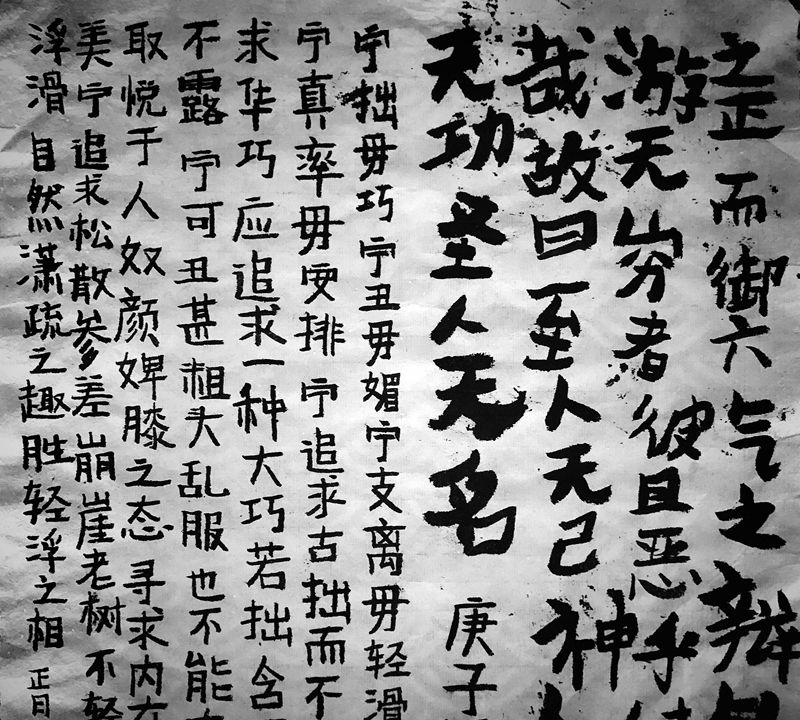 之正而御六气之辩
游无穷者彼且恶乎
哉故曰至人无己神
无功圣人无名庚子
宁拙毋巧宁丑毋媚宁支离毋轻滑
宁真率毋安排宁追求古拙而不
求华巧应追求一种大巧若拙含
不露宁可丑甚粗头乱服也不能
取悦于人奴颜婢膝之态寻求内在
美宁追求松散参差崩崖老树不轻
浮滑自然潇疏之趣胜轻浮之相正日